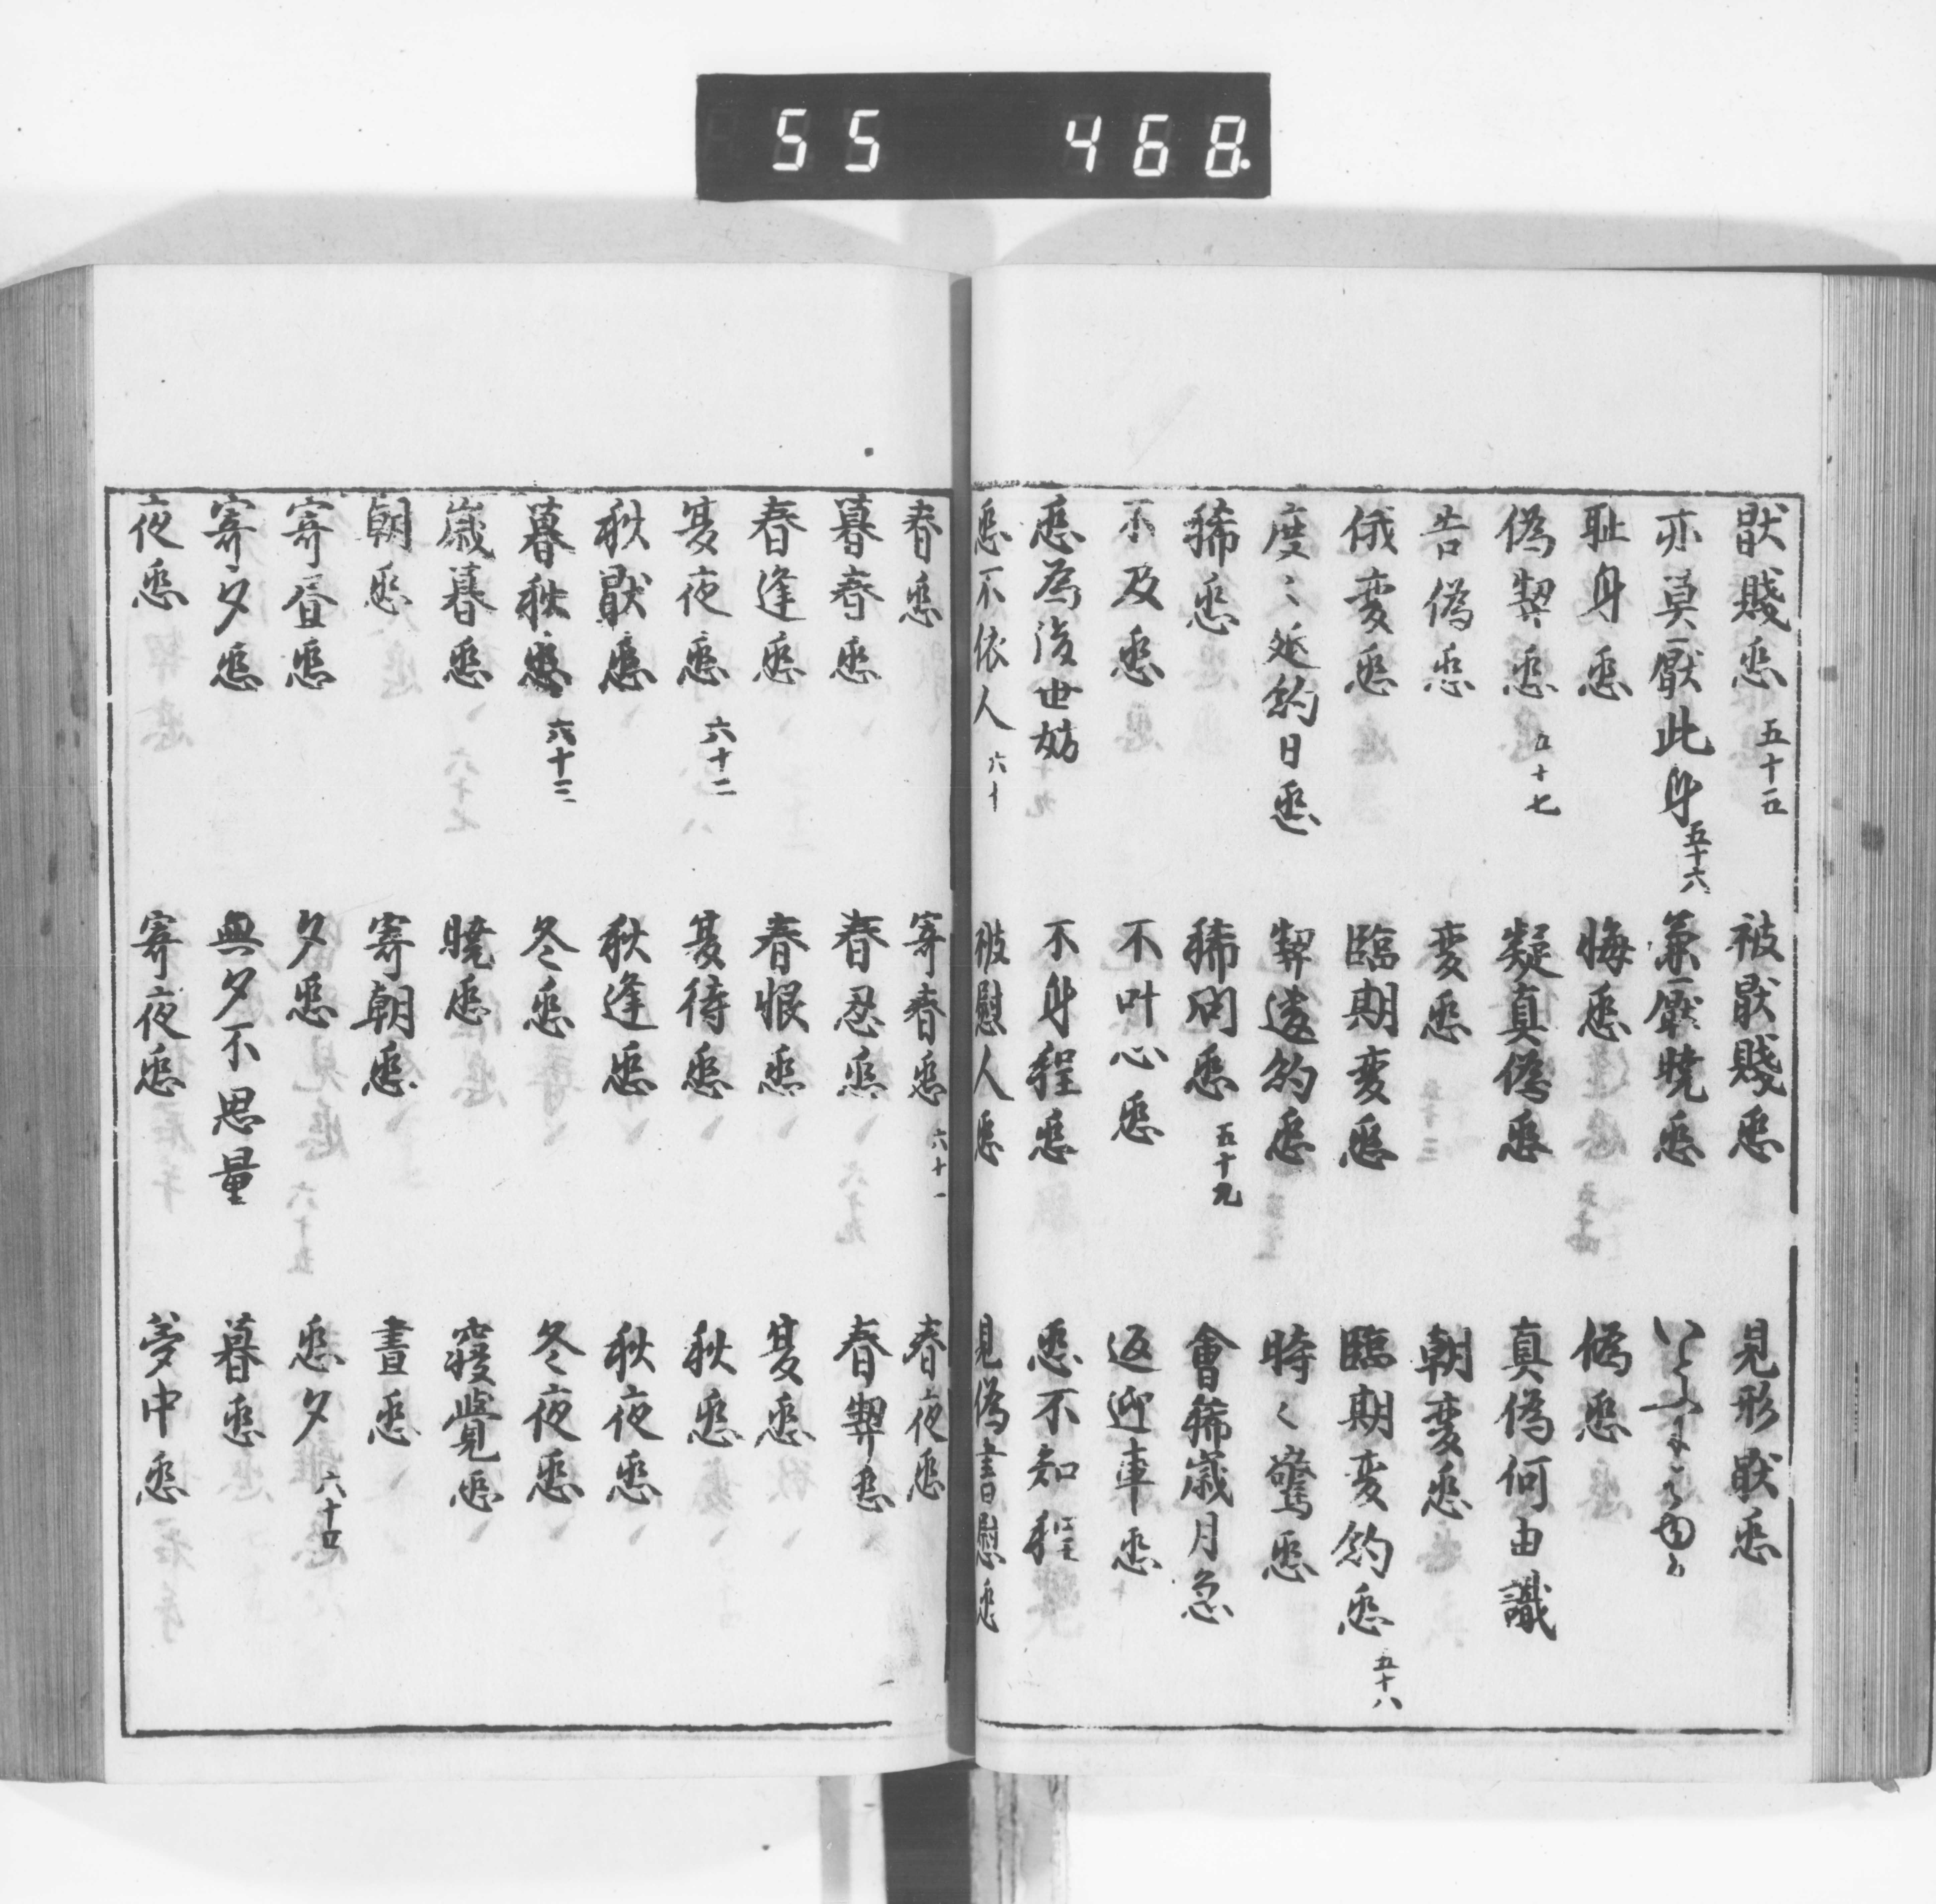 55 468
厭賤恋 五十五 被厭賤恋 見形厭恋
亦莫厭此身 五十六 兼厭暁恋
耻身恋 悔恋 偽恋
偽契恋 五十七 疑真偽恋 真偽何由識
告偽恋 変恋 朝変恋
俄変恋 臨期変恋 臨期変約恋 五十八
度〻延約日恋 契違約恋 時〻驚恋
稀恋 稀問恋 五十九 會稀歳月急
不及恋 不叶心恋 返迎車恋
恋為後世妨 不身程恋 恋不知程
恋不依人 六十 被慰人恋 見偽書慰恋
春恋 寄春恋 六十一 春夜恋
暮春恋 春忍恋 春契恋
春逢恋 春恨恋 夏恋
夏夜恋 六十二 夏待恋 秋恋
秋厭恋 秋逢恋 秋夜恋
暮秋恋 六十三 冬恋 冬夜恋
歳暮恋 暁恋 寝覚恋
朝恋 寄朝恋 晝恋
寄昼恋 夕恋 恋夕 六十四
寄夕恋 無夕不思量 暮恋
夜恋 寄夜恋 夢中恋